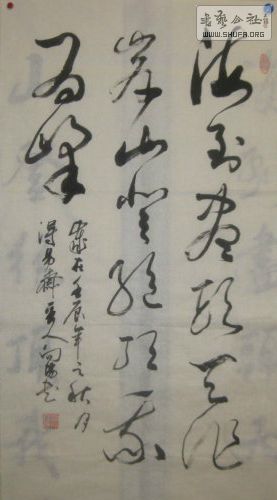 書藝公社
WWW.SHUFA.ORG
海到盡頭天作
岸山登絕頂我
為峰
歲在壬辰年之秋月
齋主人